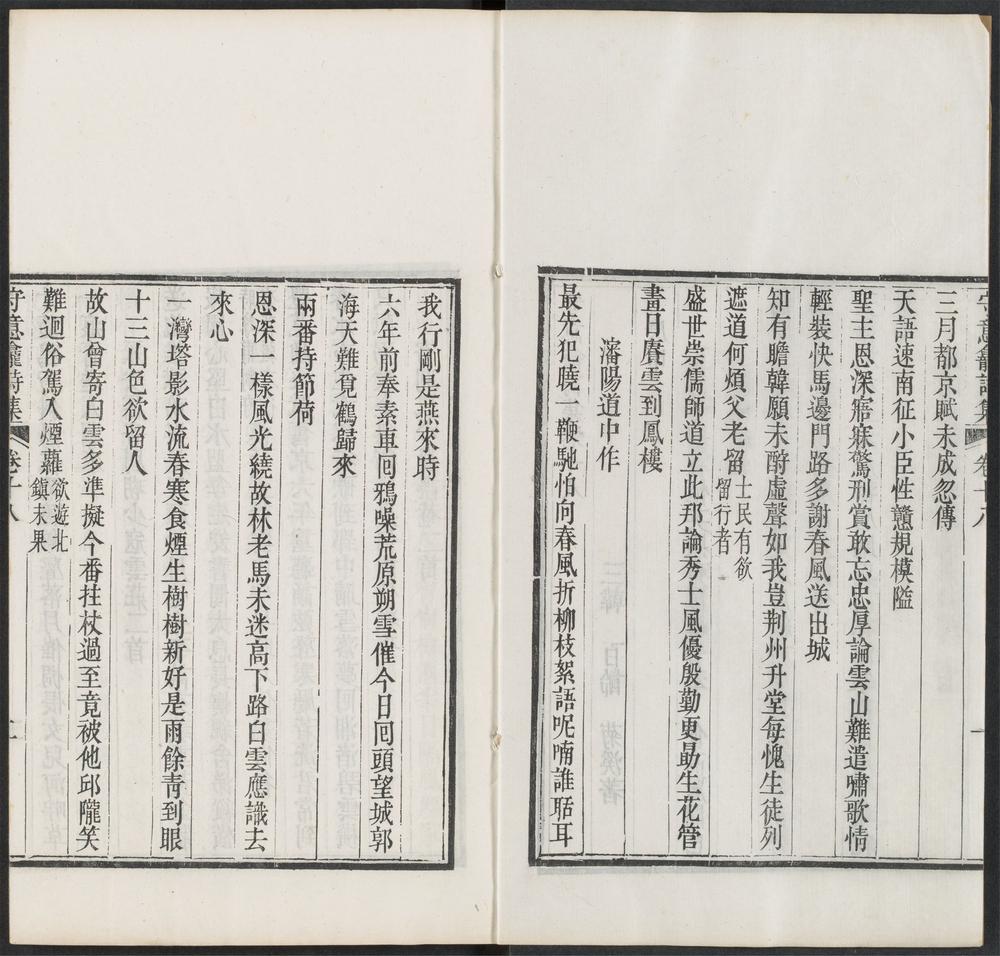 守意龕詩集 卷十八 一
三月都京賦未成忽傳
天語速南征小臣性戇規模隘
聖主恩深寤寐驚刑賞敢忘忠厚論雲山難遣嘯歌情
輕裝快馬邊門路多謝春風送出城
知有瞻韓願未酧虛聲如我豈荆州升堂每愧生徒列
遮道何煩父老留士民有欲留行者
盛世崇儒師道立此邦論秀士風優殷勤更勗生花管
晝日賡雲到鳳樓
瀋陽道中作
最先犯曉一鞭馳怕向春風折柳枝絮語呢喃誰聒耳
我行剛是燕來時
六年前奉素車回鴉噪荒原朔雪催今日回頭望城郭
海天難覓鶴歸來
兩番持節荷
恩深一樣風光繞故林老馬未迷高下路白雲應識去
來心
一灣塔影水流春寒食煙生樹樹新好是雨餘靑到眼
十三山色欲留人
故山曾寄白雲多準擬今番拄杖過至竟被他邱隴笑
難迴俗駕入煙蘿欲遊北鎭未果
守意龕詩集 卷十八 二